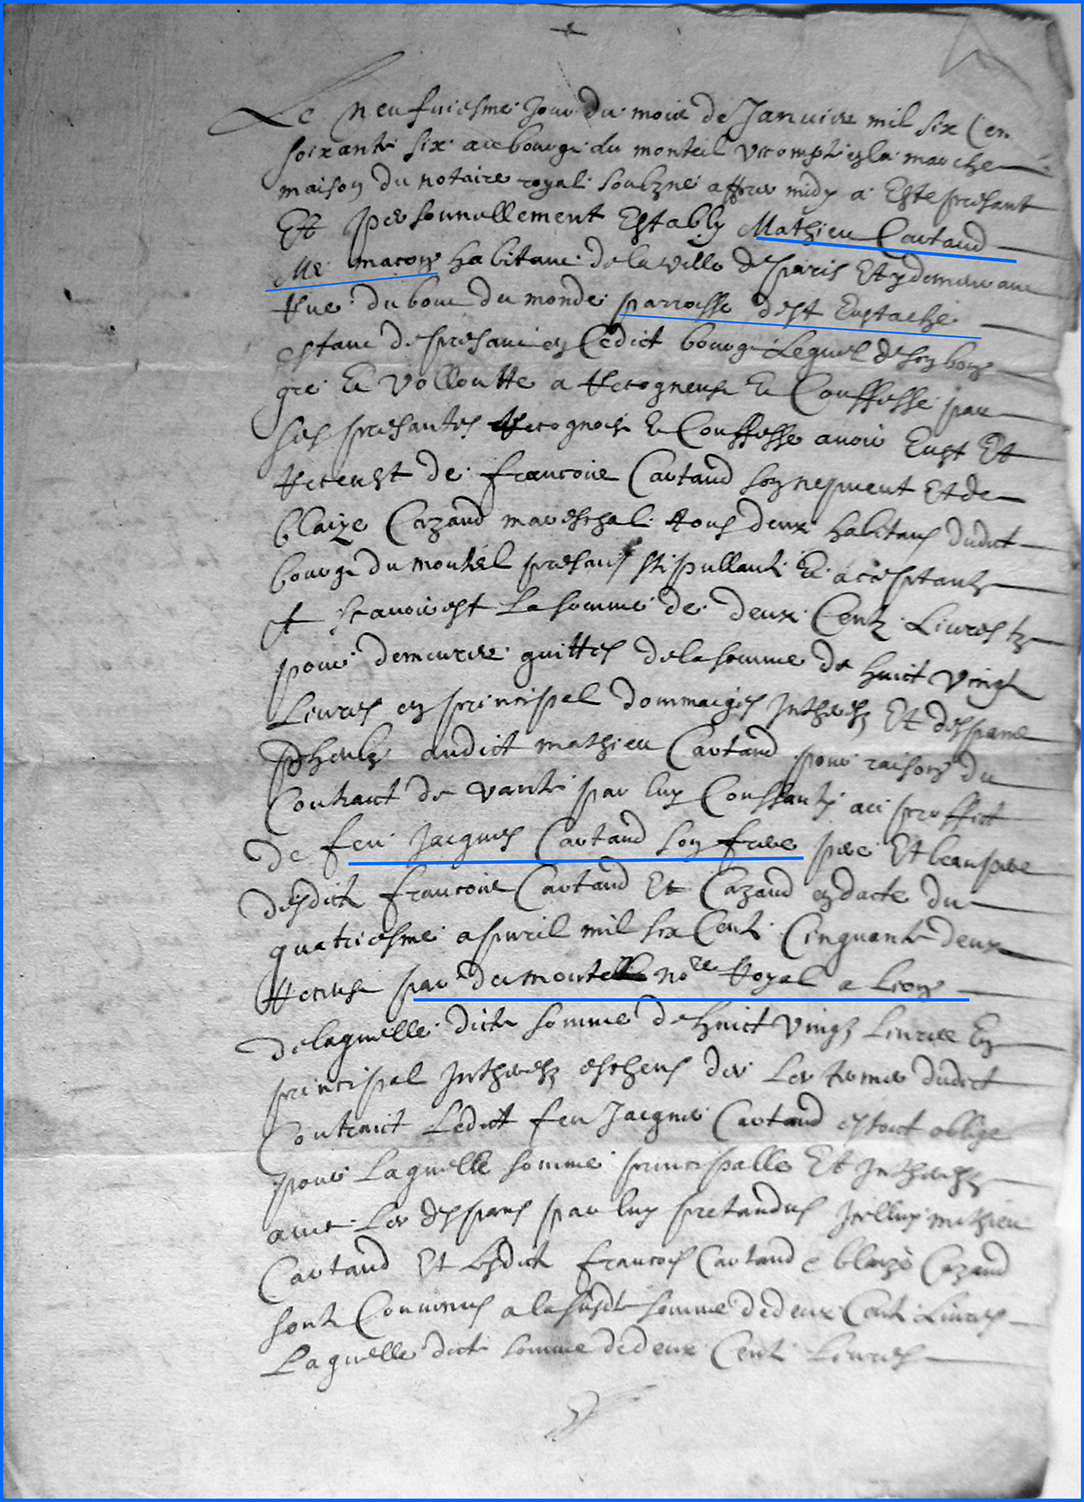 Le neufviesme jour du mois de Janvier mil six Cen
soixante six au bourg du monteil vicompté en la marche
maison du notaire royal soubzné appres midy a Esté presant
Et personnellement Estably Mathieu Cartaud
Me maçon habitant de la ville de paris Et y demeurant
Rue du bout du monde parroisse de st Eustache
estant de presant en Cedict bourg Lequel de son bon
gré Et vollontte a Recogneust Et Conffesse par
ses presantes Recognoist Et Conffesse avoir Eust Et
Receust de francois Cartaud son nepveut Et de
blaize Cazaud mareschal tous deux habitans dudict
bourg du monteil presans stipullants Et acceptants
st scavoir est La somme de deux Centz Livres tz
pour demeurer quittes de la somme de huict vingt
Livres en principal dommaiges Intheretz Et despans
audict mathieu Cartaud pour raison du
Contract de vante par luy Conssanty au proffict
de feu Jacques Cartaud son frere pere Et beaupere
desdictz francois Cartaud Et Cazaud en dacte du
quatriesme apvril mil six Centz Cinquante deux
Receust par dumonteil nore Royal a Lion
de laquelle dicte somme de huict vingtz Livres En
principal Intheretz escheus des Les termes dudict
Contraict Ledict feu Jacques Cartaud estoit obligé
pour Laquelle somme principalle Et Intheretz
avec Les despans par luy pretandus Icelluy mathieu
Cartaud Et Lesdictz francois Cartaud e blaize Cazaud
sont Convenus a la susdte somme de deux Centz Livres
Laquelle dicte somme de deux Centz Livres